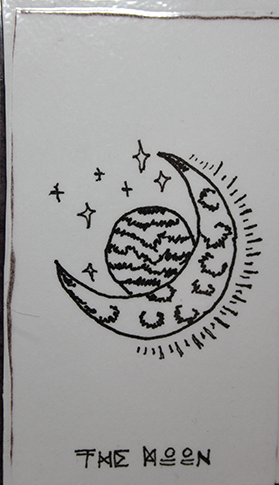 THE MOON